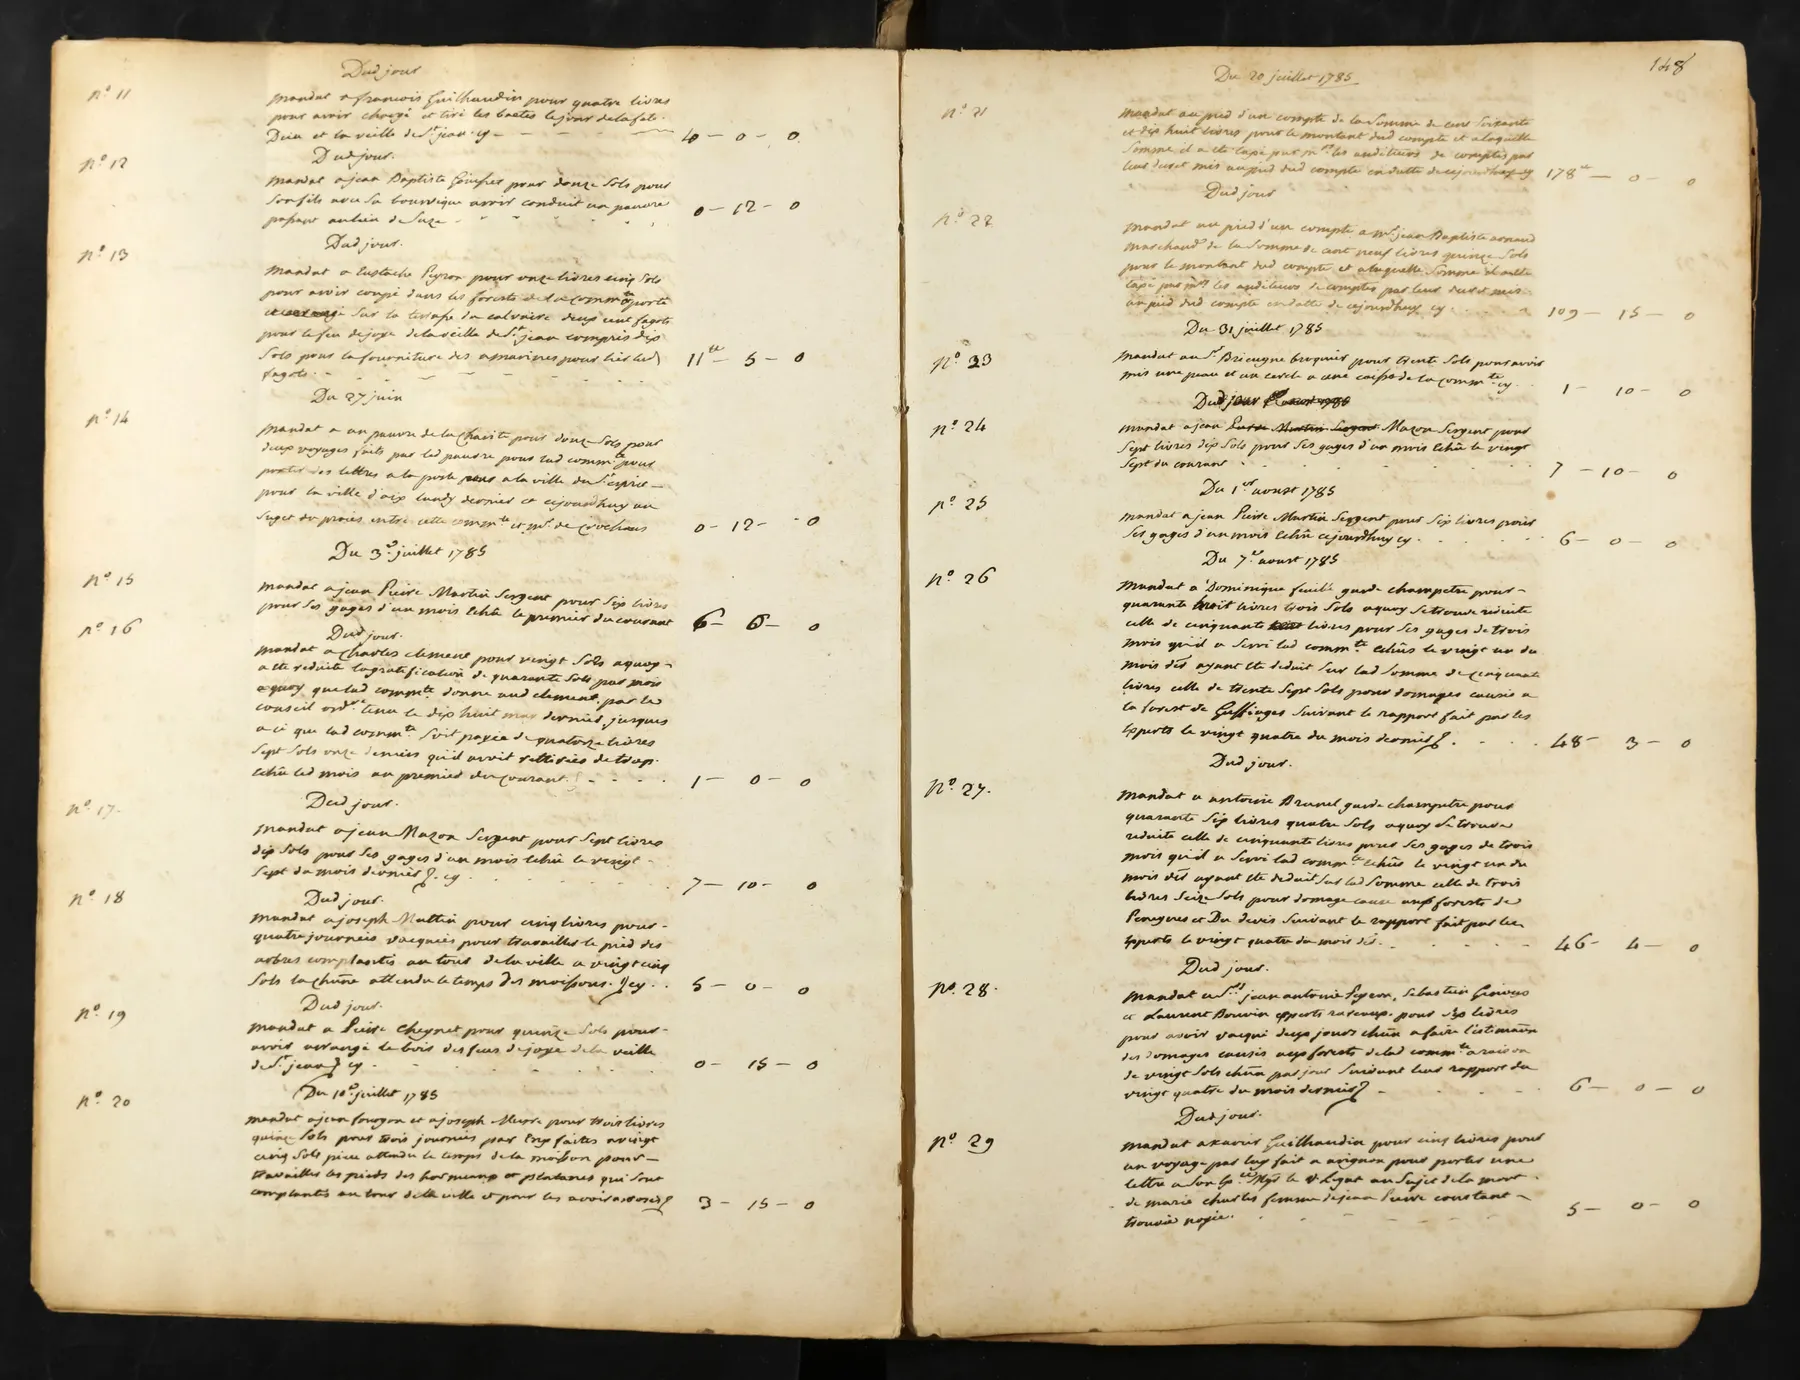 Dud jour
n.° 11
mandat a francois Guilhaudin pour quatre livres
pour avoir chargé et tiré les boetes le jour de la fete
Dieu et la veille de St jean. cy 4 - 0 - 0
Dud jour.
n.° 12
mandat a jean Baptiste pour douze sols pour
son fils avec sa bourrique avoir conduit un pauvre
passant au lieu de Suze 0 - 12 - 0
Dud jour.
n.° 13
mandat a Eustache Peyron pour onze livres cinq sols
pour avoir coupé dans les forests de la commte aporté
et arrangé sur la terrasse du calvaire deux cent fagots
pour le feu de joye de la veille de St jean compris dix
sols pour la fourniture des amarines pour lier led
fagots. 11tt - 5 - 0
Du 27 juin
n.° 14
mandat a un pauvre de la Charité pour douze sols pour
deux voyages faits par led pauvre pour lad commte pour
porter des lettres a la poste a la ville du St esprit
pour la ville d'aix lundy dernier et cejourdhuy au
sujet du procès entre cette commte et mr de Rochans 0 - 12 - 0
Du 3e juillet 1785
n.° 15
mandat a jean Pierre Martin Sergent pour six livres
pour ses gages d'un mois echû le premier du courant 6 - 6 - 0
Dud jour.
n.° 16
mandat a Charles Clement pour vingt sols aquoy
a été reduite la gratification de quarante sols par mois
aquoy que lad commte donne aud clement par le
conseil ordre tenu le dix huit mars dernier, jusques
a ce que lad commte soit payée de quatorze livres
sept sols onze deniers qu'il avoit retirées de trop.
echû led mois au premier du courant. 1 - 0 - 0
Dud jour.
n.° 17.
mandat a jean Mazon Sergent pour sept livres
dix sols pour ses gages d'un mois echû le vingt
sept du mois dernier. cy 7 - 10 - 0
Dud jour.
n.° 18
mandat a joseph Muttin pour cinq livres pour
quatre journées vacquées pour travailler le pied des
arbres complantés au tour de la ville a vingt cinq
sols la chûne attendu le temps des moissons. cy 5 - 0 - 0
Dud jour.
n.° 19
mandat a Pierre Cheynet pour quinze sols pour
avoir arrangé le bois des feux de joye de la veille
de St jean cy 0 - 15 - 0
Du 10e juillet 1785
n.° 20
mandat a jean fourgon et a joseph Meure pour trois livres
quinze sols pour trois journées par eux faites a vingt
cinq sols piece attendu le temps de la moisson pour
travailler les pieds des hormeaux et platanes qui sont
complantés au tour de la ville et pour les avoir arrosés 3 - 15 - 0
148
Du 20 juillet 1785
n.° 21
mandat au pied d'un compte de la somme de cent soixante
et dix huit livres pour le montant dud compte et a laquelle
somme il a été taxé par mrs les auditeurs de comptes par
leur decret mis au pied dud compte en datte de cejourdhuy cy 178tt - 0 - 0
Dud jour
n.° 22
mandat au pied d'un compte a mr jean Baptiste arnaud
marchand de la somme de cent neuf livres quinze sols
pour le montant dud compte et a laquelle somme il a été
taxé par mrs les auditeurs de comptes par leur decret mis
au pied dud compte en datte de cejourdhuy cy 109 - 15 - 0
Du 31 juillet 1785
n.° 23
mandat au Sr Breugne broquier pour trente sols pour avoir
mis une peau et un cercle a une caisse de la commte cy 1 - 10 - 0
Dud jour 1er aoust 1785
n.° 24
mandat a jean Pierre Martin Sergent Mazon Sergent pour
sept livres dix sols pour ses gages d'un mois echû le vingt
sept du courant 7 - 10 - 0
Du 1er aoust 1785
n.° 25
mandat a jean Pierre Martin Sergent pour six livres pour
ses gages d'un mois echû cejourdhuy cy. 6 - 0 - 0
Du 7e aoust 1785
n.° 26
mandat a Dominique feuillé garde champetre pour
quarante huit livres trois sols aquoy se trouve reduite
celle de cinquante livres pour ses gages de trois
mois qu'il a servi lad commte echûs le vingt un du
mois der ayant été deduit sur lad somme de cinquante
livres celle de trente sept sols pour domages causés a
la forest de suivant le rapport fait par les
experts le vingt quatre du mois dernier. 48 - 3 - 0
Dud jour.
n.° 27.
mandat a antoine Brunel garde champetre pour
quarante six livres quatre sols aquoy se trouve
reduite celle de cinquante livres pour ses gages de trois
mois qu'il a servi lad commte echûs le vingt un du
mois der ayant été deduit sur lad somme celle de trois
livres seize sols pour domage causé aux forests de
et Du devés suivant le rapport fait par les
experts le vingt quatre du mois der. 46 - 4 - 0
Dud jour.
n.° 28.
mandat a Srs jean antoine Peyron, Sebastien
et Laurent Bouvin experts pour six livres
pour avoir vacqué deux jours chûn a faire l'estimaôn
des domages causés aux forests de lad commte a raison
de vingt sols chûn par jour suivant leur rapport du
vingt quatre du mois dernier 6 - 0 - 0
Dud jour.
n.° 29
mandat a xavier Guilhaudin pour cinq livres pour
un voyage par luy fait a avignon pour porter une
lettre a son Ex.ce Mgr le V Legat au sujet de la mort
de marie charles femme de jean Pierre constant
trouvée noyée. 5 - 0 - 0